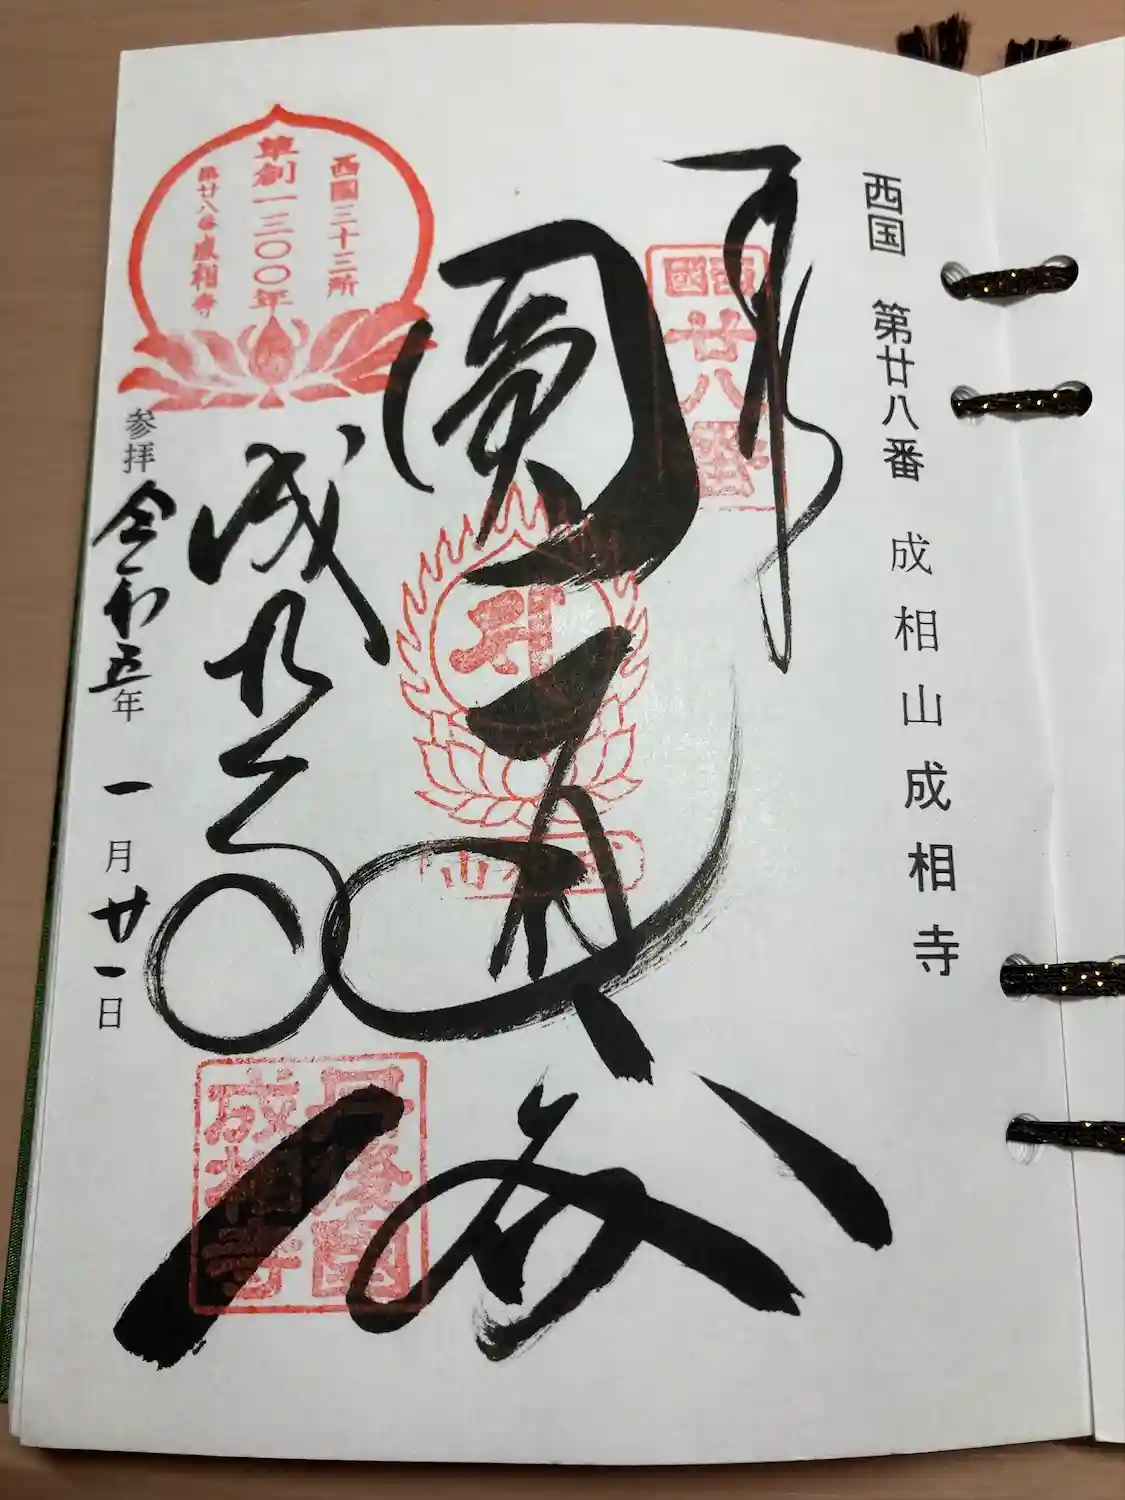 西国 第廿八番 成相山成相寺
西國
廿八番
圓通殿
成相山
成相寺
丹後國
成相寺
西國三十三所
草創一三〇〇年
第廿八番成相寺
参拝 令和五年 一月廿一日